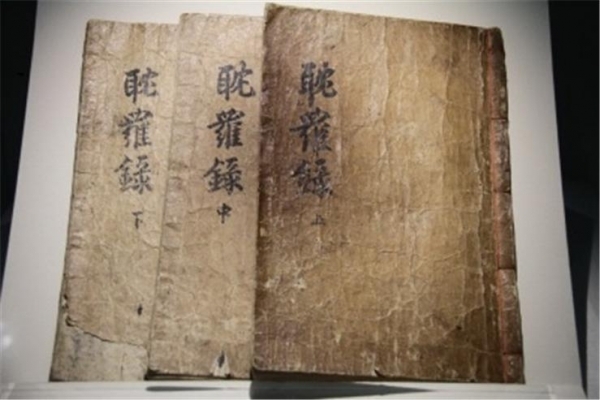 耽羅錄 上
耽羅錄 中
耽羅錄 下